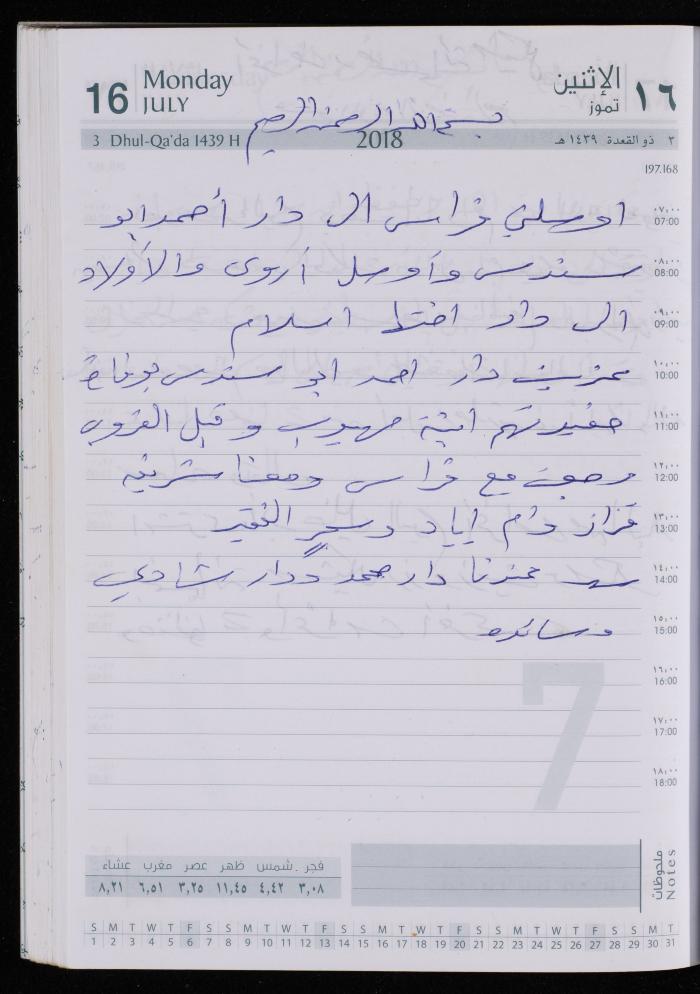 16 Monday JULY الإثنين تموز ١٦
بسم الله الرحمن الرحيم
3 Dhul-Qa'da 1439 H 2018 ٣ ذو القعدة ١٤٣٩ هـ
197.168
اوصلني فراس الى دار أحمد ابو ٠٧:٠٠ 07:00
سندس وأوصل أروى والأولاد ٠٨:٠٠ 08:00
الى دار اختها اسلام ٠٩:٠٠ 09:00
عزيت دار احمد ابو سندس بوفاة ١٠:٠٠ 10:00
حفيدتهم ابنة صهيب وقبل الغروب ١١:٠٠ 11:00
رجعت مع فراس ومعنا شريفة ١٢:٠٠ 12:00
قزاز وأم اياد وسحر الفقير ١٣:٠٠ 13:00
عزينا دار محمد ودار شادي ١٤:٠٠ 14:00
وسائده ١٥:٠٠ 15:00
١٦:٠٠ 16:00
7
١٧:٠٠ 17:00
١٨:٠٠ 18:00
فجر شمس ظهر عصر مغرب عشاء
٣,٠٨ ٤,٤٢ ١١,٤٥ ٣,٢٥ ٦,٥١ ٨,٢١
ملاحظات Notes
S M T W T F S S M T W T F S S M T W T F S S M T W T F S S M T
1 2 3 4 5 6 7 8 9 10 11 12 13 14 15 16 17 18 19 20 21 22 23 24 25 26 27 28 29 30 31